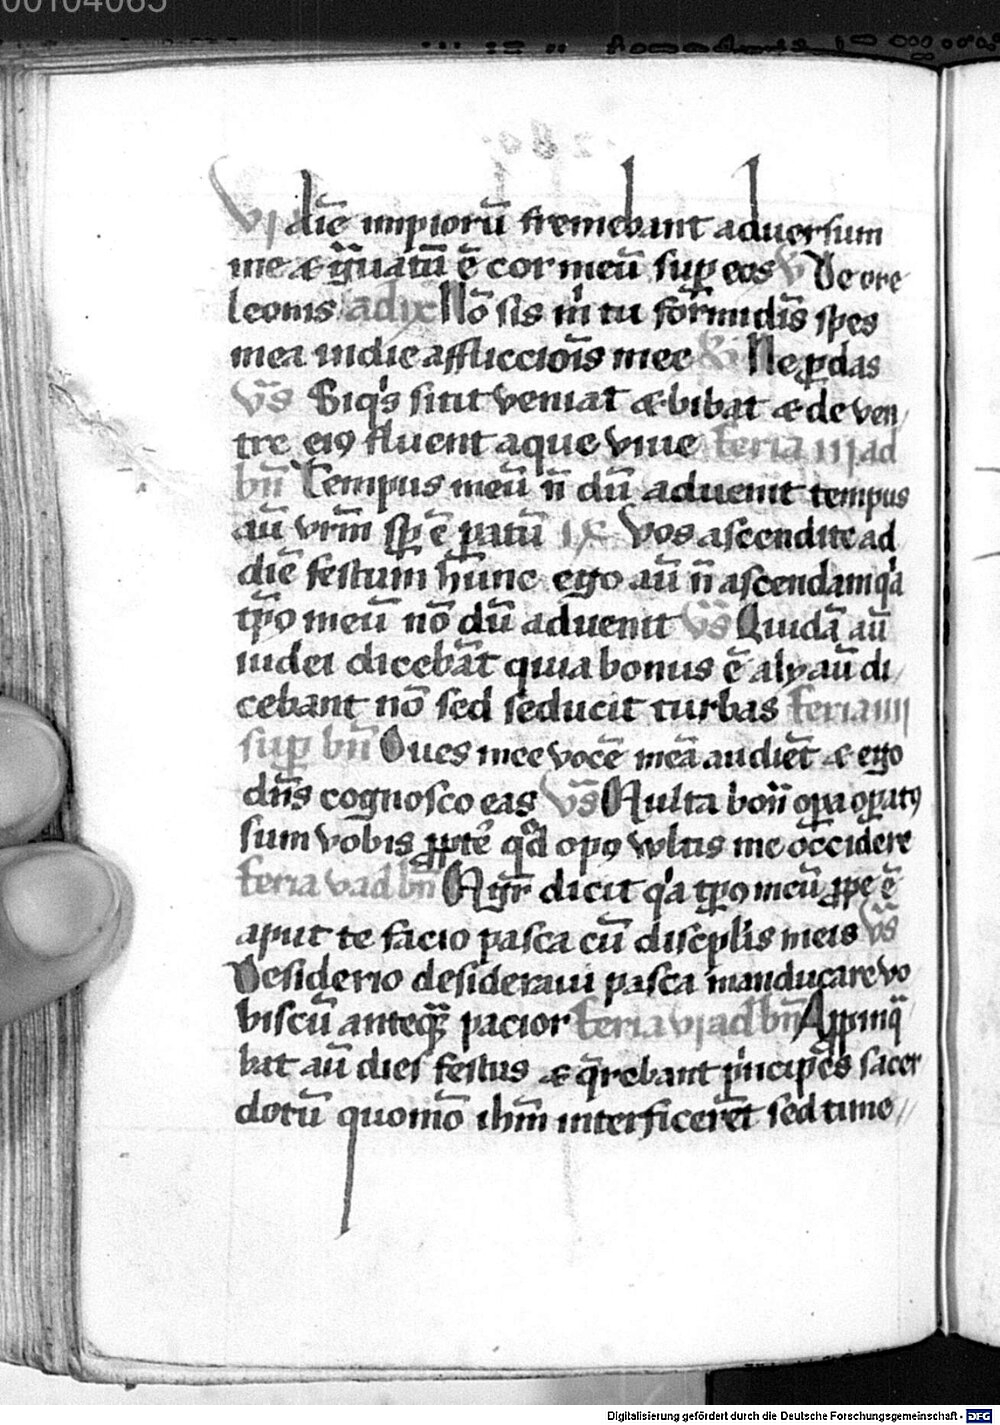 00104065
vı diē impiorū fremebant aduersum
me & gͥuatū ē cor meū sup eos V De ore
leonis ad ix Nō sis mͥ tu formidīs spes
mea in die affliccioīs mee R Ne ꝑdas
v̄s Siqͥs sitit veniat & bibat & de ven
tre eiꝰ fluent aque viue feria iij ad
bn̄ Tempus meū n̄ dū aduenit tempus
aū vr̄m sꝑ ē patū ix Vos ascendite ad
diē festum hunc ego aū n̄ ascendam qͥa
tp̄o meū nō dū aduenit v̄s Quidā aū
iudei dicebāt quia bonus ē alij aū di
cebant nō sed seducit turbas feria iiij
sup bn̄ Oues mee vocē meā audiēt & ego
dn̄s cognosco eas v̄s Multa bōa oꝑa oꝑatꝰ
sum vobis ꝓpt̄ qͦd opꝰ vultis me occidere
feria v ad bn̄ Mgr̄ dicit qͥa tp̄o meū ꝓpe ē
aput te facio pasca cū discplīs meis v̄s
Desiderio desideraui pasca manducare vo
biscū anteqͣꝫ pacior feria vj ad bn̄ Aꝓpinqͣ
bat aū dies festus & qͣrebant pͥncipes sacer
dotū quomō ihm̄ interficerēt sed time
Digitalisierung gefördert durch die Deutsche Forschungsgemeinschaft - DFG